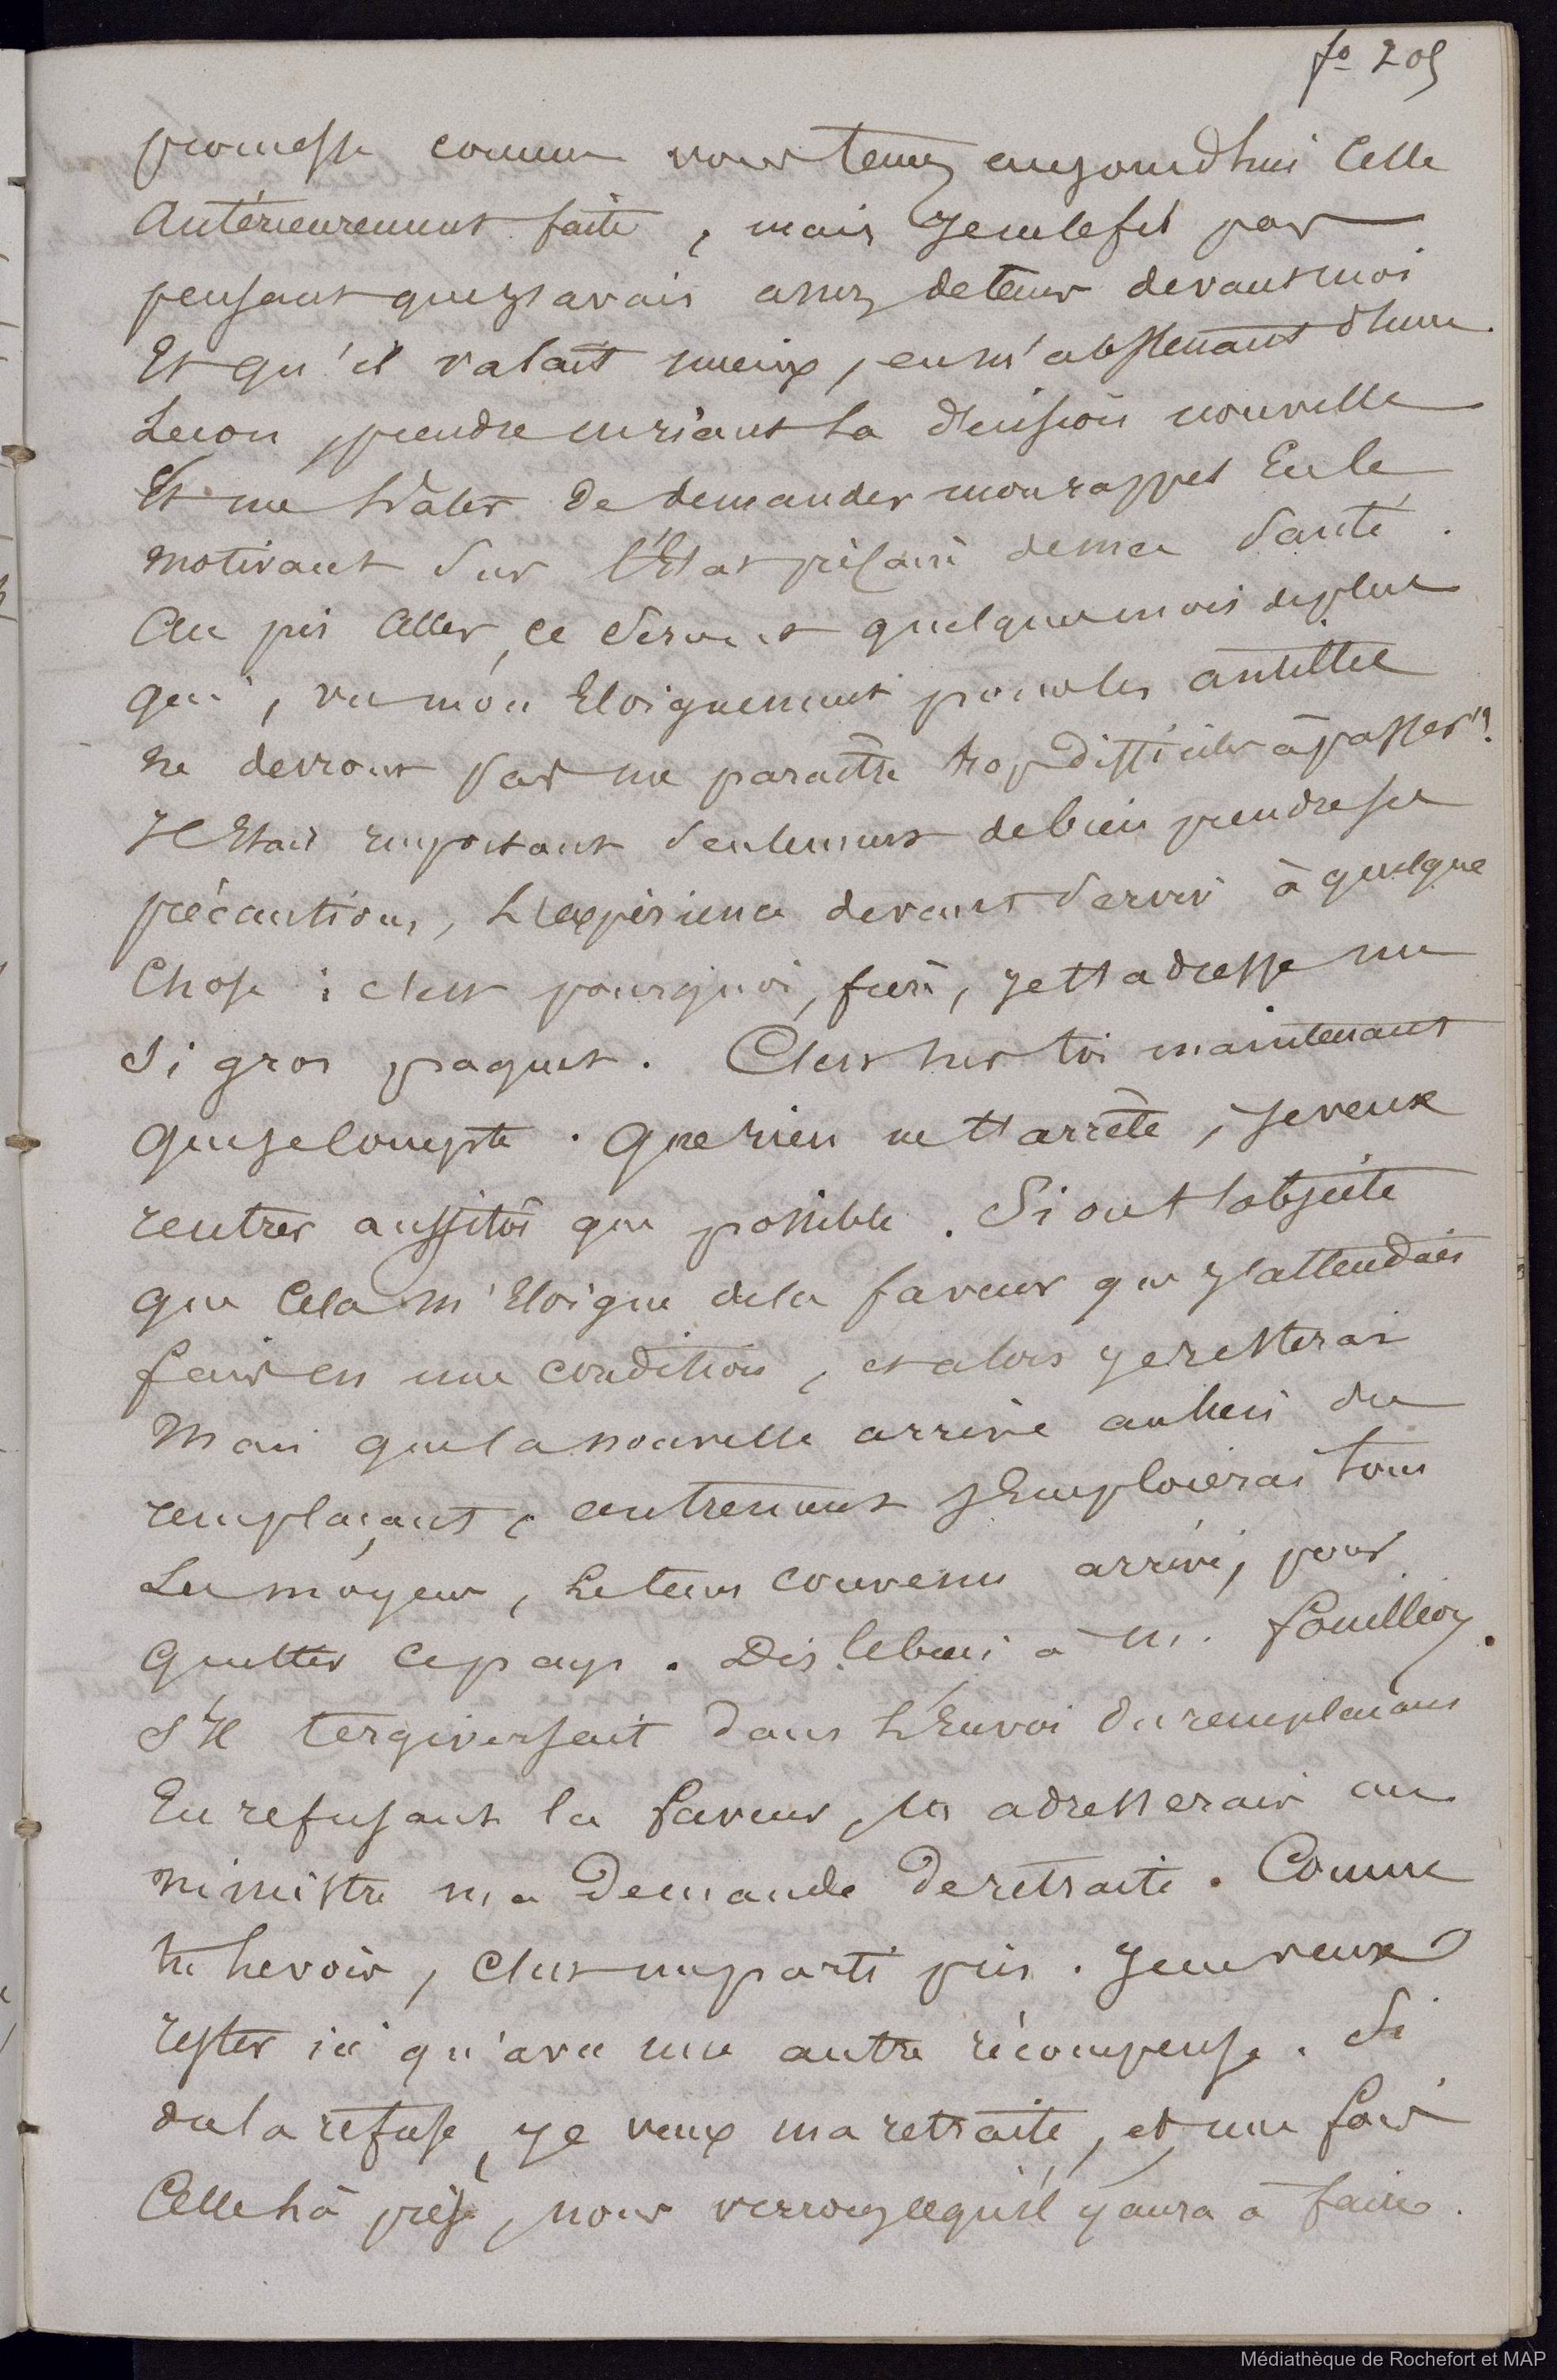 fo 205
promesse comme vous tenez aujourd'hui celle
antérieurement faite, mais je ne le fis pas
pensant que j'avais assez de temps devant moi
Et qu'il valait mieux, en m'abstenant d'une
Leçon, prendre en riant la décision nouvelle
Et me hâter de demander mon rappel En le
motivant sur l'Etat précaire de ma santé.
Au pis aller, ce seront quelques mois de plus
qui, vu mon Eloignement pour les antilles
ne devront pas me paraître trop difficiles à passer".
Il Etait important seulement de bien prendre ses
précautions, L'expérience devant servir à quelque
Chose : c'est pourquoi, frère, je t'adresse un
si gros paquet. C'est sur toi maintenant
que je compte. Que rien ne t'arrête, je veux
rentrer aussitôt que possible. Si on t'objecte
que cela m'Eloigne de la faveur que j'attendais
fais en une condition, et alors je resterai
Mais que la nouvelle arrive au lieu du
remplaçant, autrement j'Emploierai tous
Les moyens, le temps convenu arrivé, pour
quitter ce pays. Dis le bien à M. fouilleoy.
S'Il tergiversait dans L'Envoi du remplaçant
En refusant la faveur, j'adresserais au
ministre ma demande de retraite. Comme
tu le vois, c'est un parti pris. Je ne veux
rester ici qu'avec une autre récompense. Si
on la refuse, je veux ma retraite, et une fois
Celle là prise, nous verrons ce qu'il y aura à faire.
Médiathèque de Rochefort et MAP